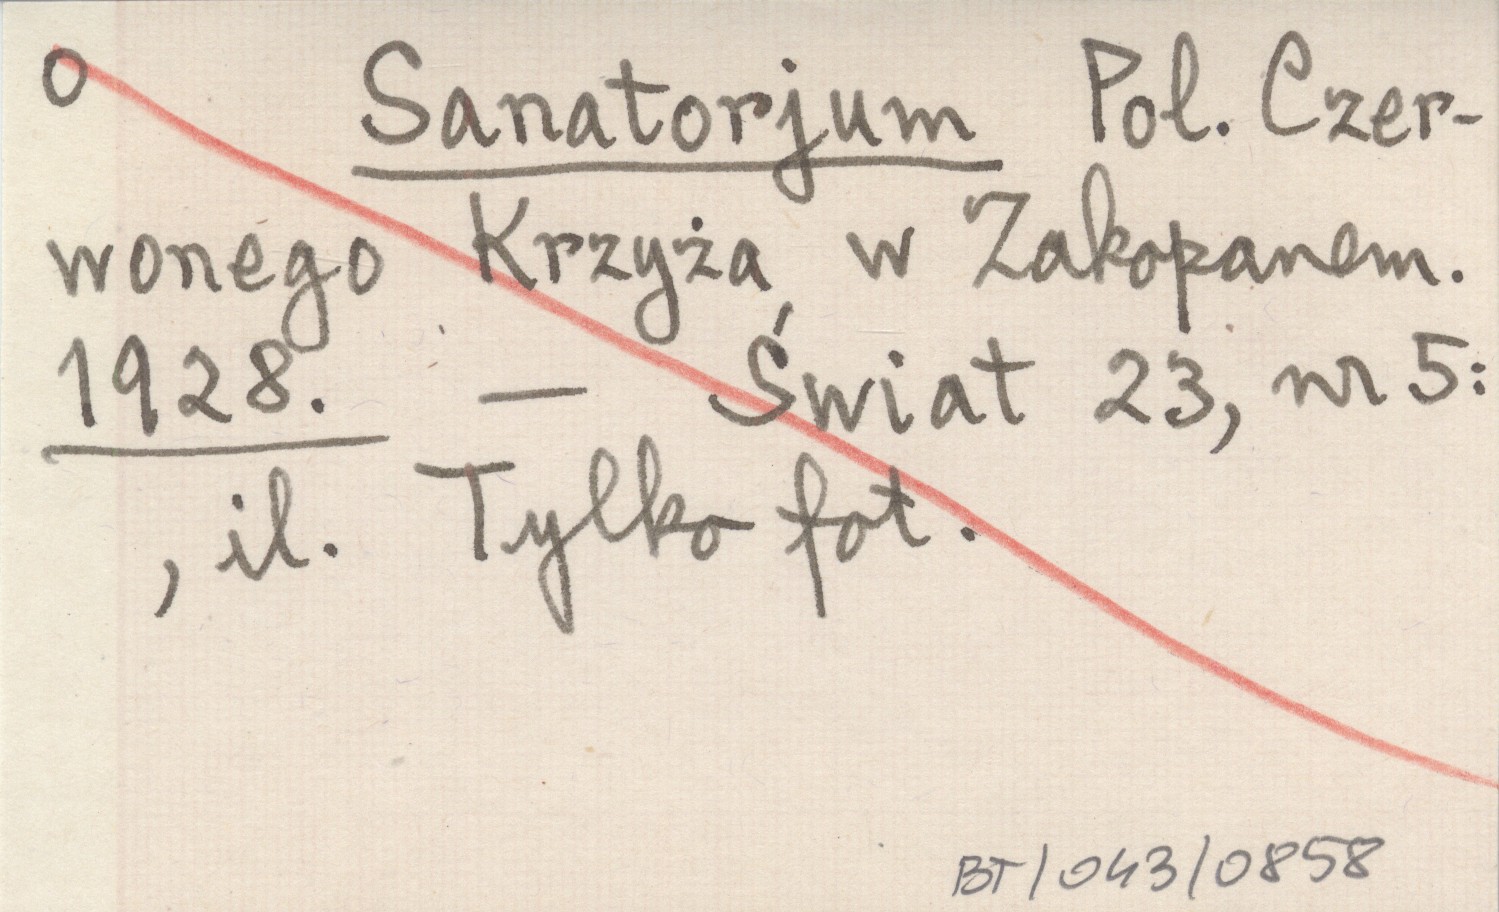 o Sanatorjum Pol. Czer-
wonego Krzyża w Zakopanem.
1928. — Świat 23, nr 5:
, il. Tylko fot.
BT/043/0858